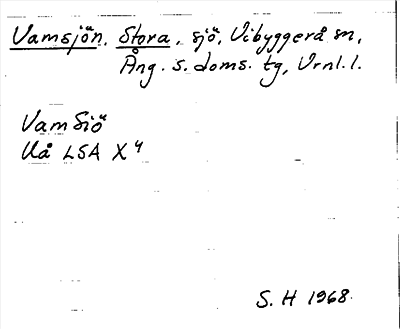 Vamsjön, Stora, sjö, Vibyggerå sn,
Ång. s. doms. tg, Vrnl. l.
Vam Siö
Uå LSA X 4
S. H 1968.